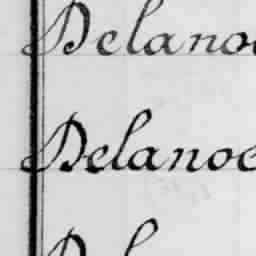 Delanoe
Delanoe